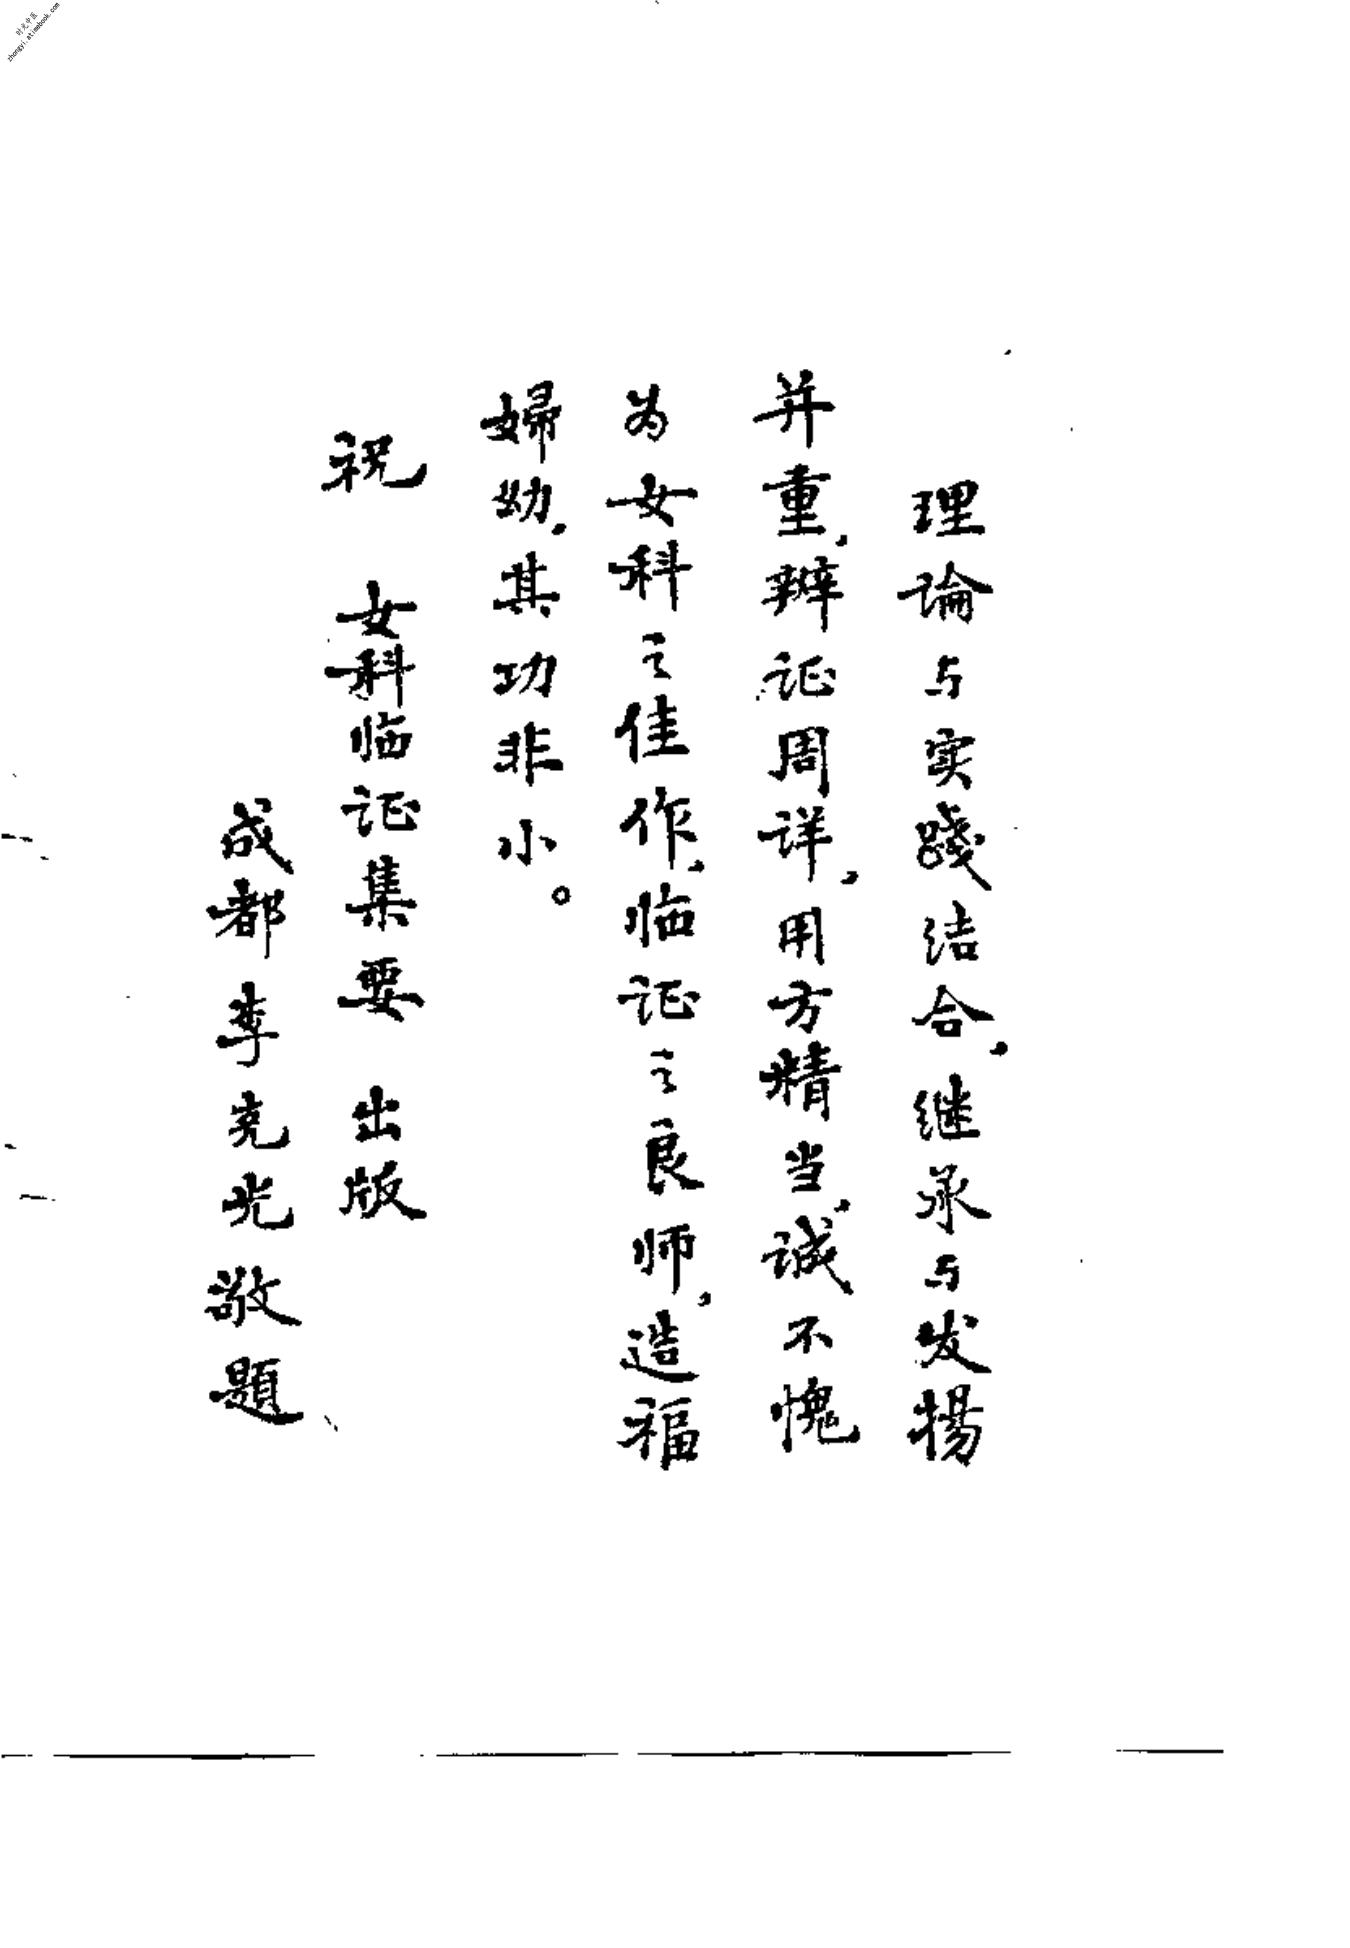 理论与实践结合，继承与发扬
并重，辨证周详，用方精当，诚不愧
为女科之佳作，临证之良师，造福
婦幼，其功非小。
祝 女科临证集要 出版
成都李克光敬题
时光中医
zhongyi.atimebook.com